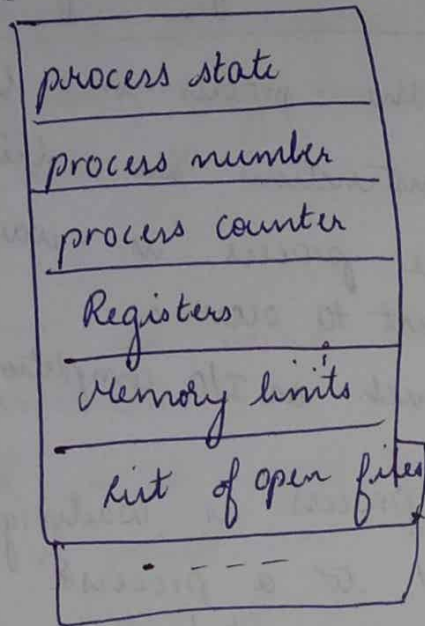 process state
process number
process counter
Registers
Memory limits
List of open files
. - - - -